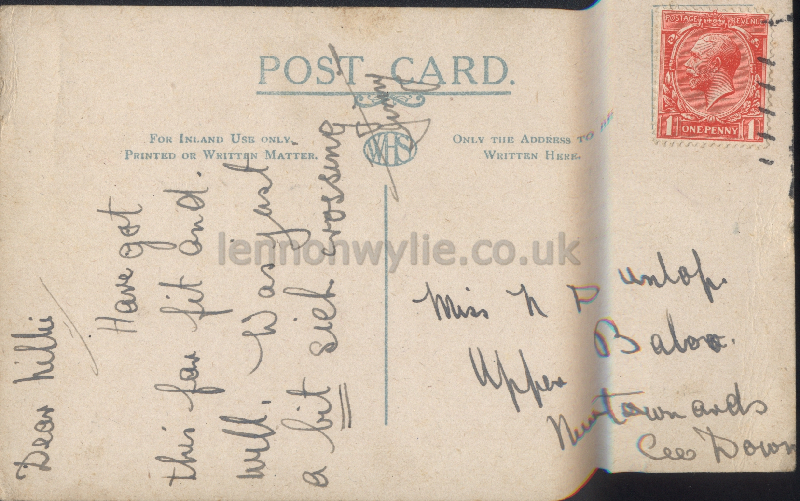 POST CARD.
FOR INLAND USE ONLY.
PRINTED OR WRITTEN MATTER.
WHS
ONLY THE ADDRESS TO BE
WRITTEN HERE.
POSTAGE REVENUE
1 ONE PENNY 1
Dear Lillie
Have got
this far fit and
well. Was just
a bit sick crossing
Jimmy
Miss N Dunlop.
Upper Baloo.
Newtownards
Co Down
lennonwylie.co.uk